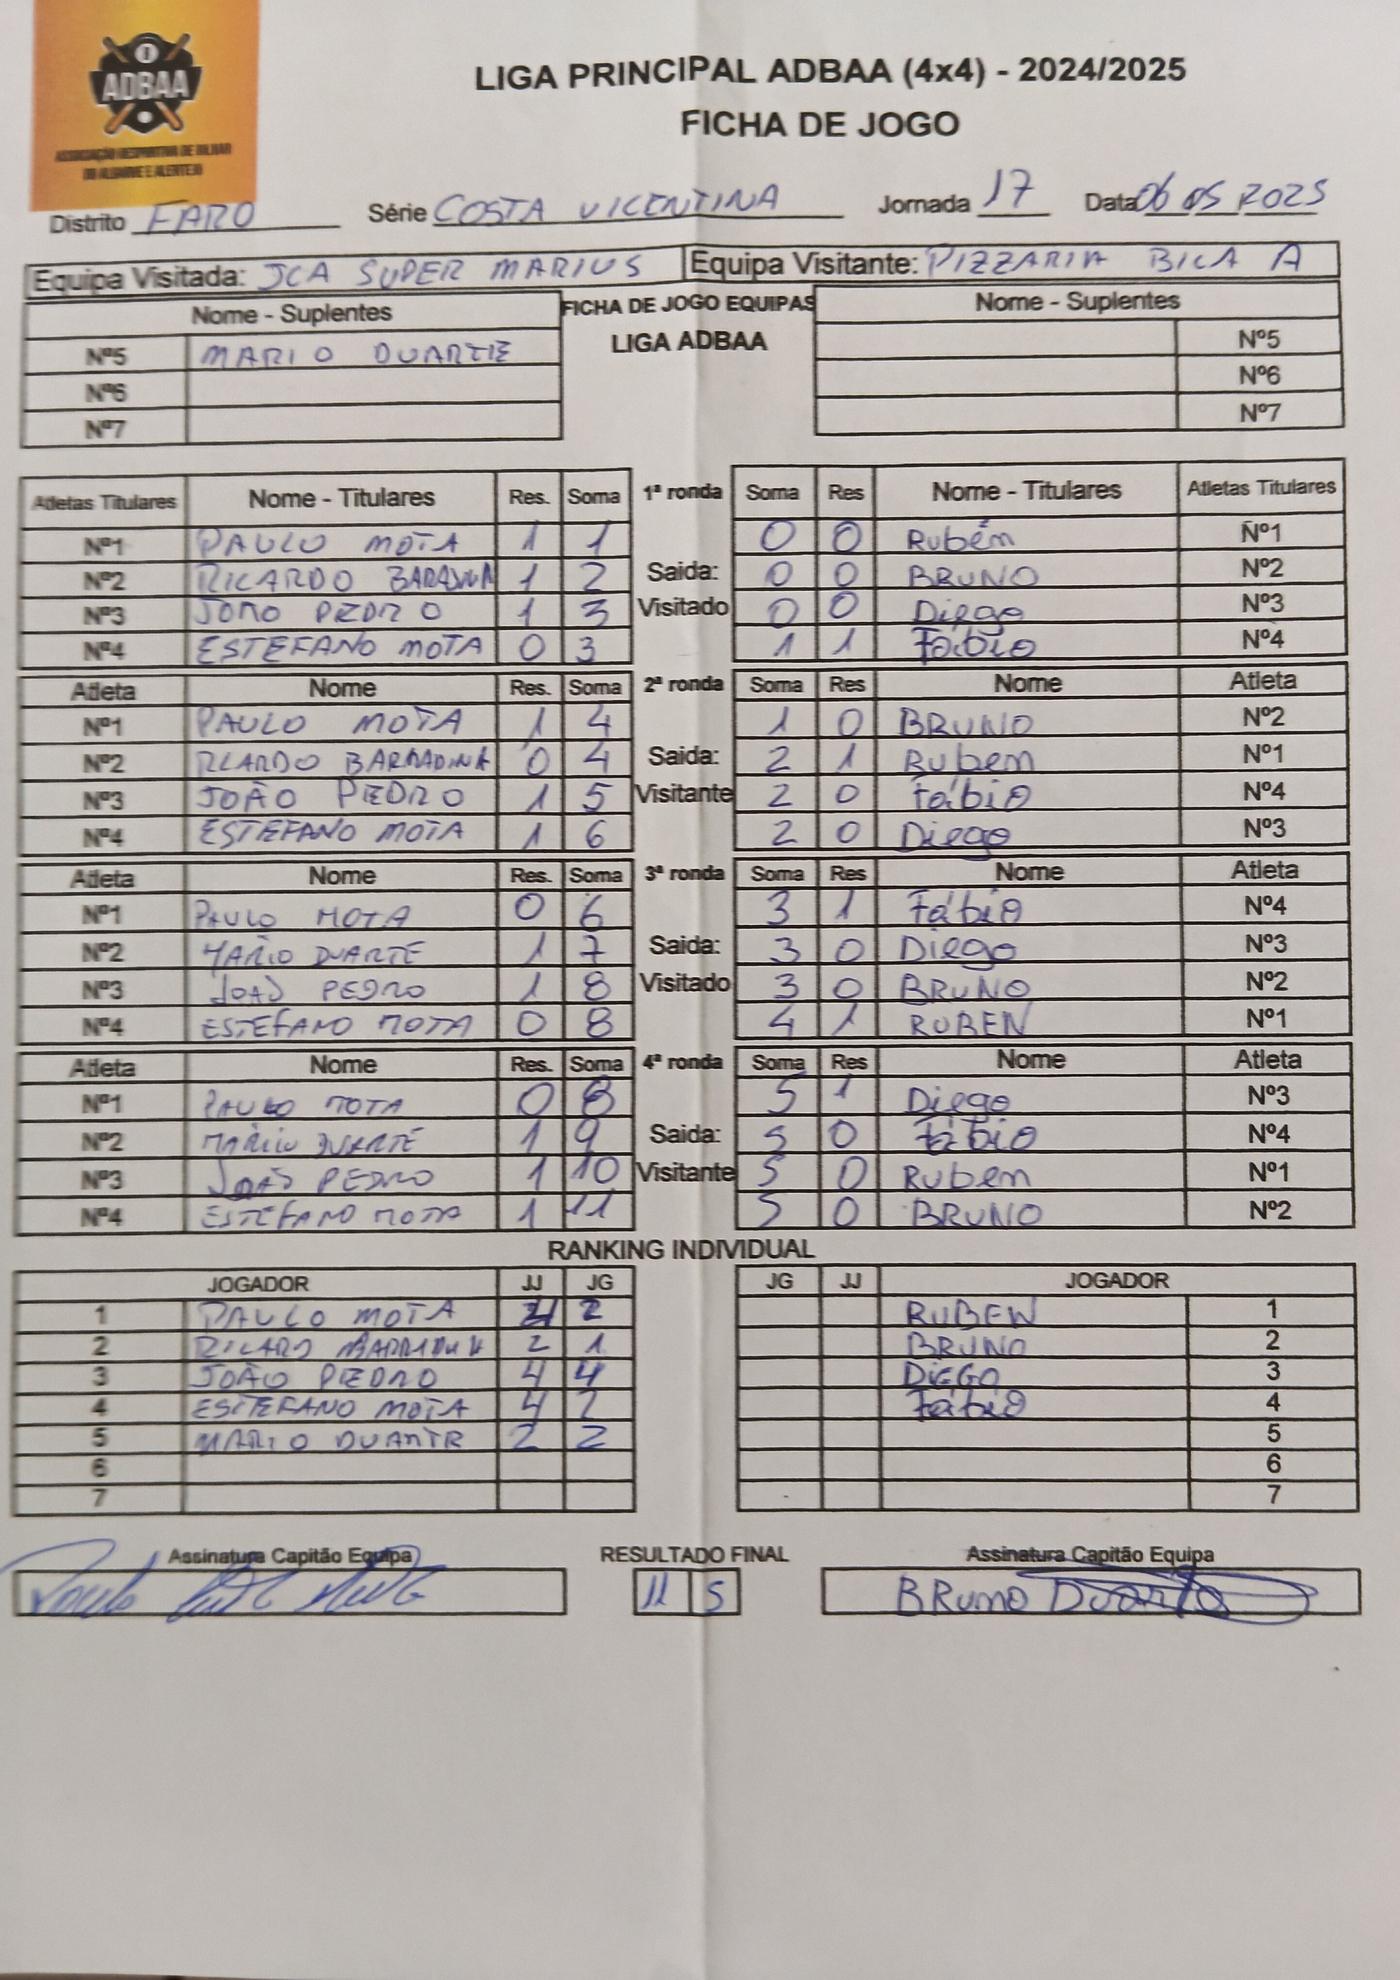 ADBAA
ASSOCIAÇÃO DESPORTIVA DE BILHAR
DO ALGARVE E ALENTEJO
LIGA PRINCIPAL ADBAA (4x4) - 2024/2025
FICHA DE JOGO
Distrito FARO Série COSTA VICENTINA Jornada 17 Data 06 05 2025
Equipa Visitada: JCA SUPER MARIUS Equipa Visitante: PIZZARIA BICA A
Nome - Suplentes FICHA DE JOGO EQUIPAS Nome - Suplentes
Nº5 MARIO DUARTE LIGA ADBAA Nº5
Nº6 Nº6
Nº7 Nº7
Atletas Titulares Nome - Titulares Res. Soma 1ª ronda Soma Res Nome - Titulares Atletas Titulares
Nº1 PAULO MOTA 1 1 0 0 Rubén Nº1
Nº2 RICARDO 1 2 Saida: 0 0 BRUNO Nº2
Nº3 JOÃO PEDRO 1 3 Visitado 0 0 Diego Nº3
Nº4 ESTEFANO MOTA 0 3 1 1 Fábio Nº4
Atleta Nome Res. Soma 2ª ronda Soma Res Nome Atleta
Nº1 PAULO MOTA 1 4 1 0 BRUNO Nº2
Nº2 RCARDO BARRADINHA 0 4 Saida: 2 1 Rubem Nº1
Nº3 JOÃO PEDRO 1 5 Visitante 2 0 Fábio Nº4
Nº4 ESTEFANO MOTA 1 6 2 0 Diego Nº3
Atleta Nome Res. Soma 3ª ronda Soma Res Nome Atleta
Nº1 PAULO MOTA 0 6 3 1 Fábio Nº4
Nº2 MÁRIO DUARTE 1 7 Saida: 3 0 Diego Nº3
Nº3 JOÃO PEDRO 1 8 Visitado 3 0 BRUNO Nº2
Nº4 ESTEFANO MOTA 0 8 4 1 RUBEN Nº1
Atleta Nome Res. Soma 4ª ronda Soma Res Nome Atleta
Nº1 PAULO MOTA 0 8 5 1 Diego Nº3
Nº2 MÁRIO DUARTE 1 9 Saida: 5 0 Fábio Nº4
Nº3 JOÃO PEDRO 1 10 Visitante 5 0 Rubem Nº1
Nº4 ESTEFANO MOTA 1 11 5 0 BRUNO Nº2
RANKING INDIVIDUAL
JOGADOR JJ JG JG JJ JOGADOR
1 PAULO MOTA 4 2 RUBEN 1
2 2 1 BRUNO 2
3 JOÃO PEDRO 4 4 DIEGO 3
4 ESTEFANO MOTA 4 2 Fábio 4
5 MARIO DUARTE 2 2 5
6 6
7 7
Assinatura Capitão Equipa RESULTADO FINAL Assinatura Capitão Equipa
11 5 BRUNO Duarte